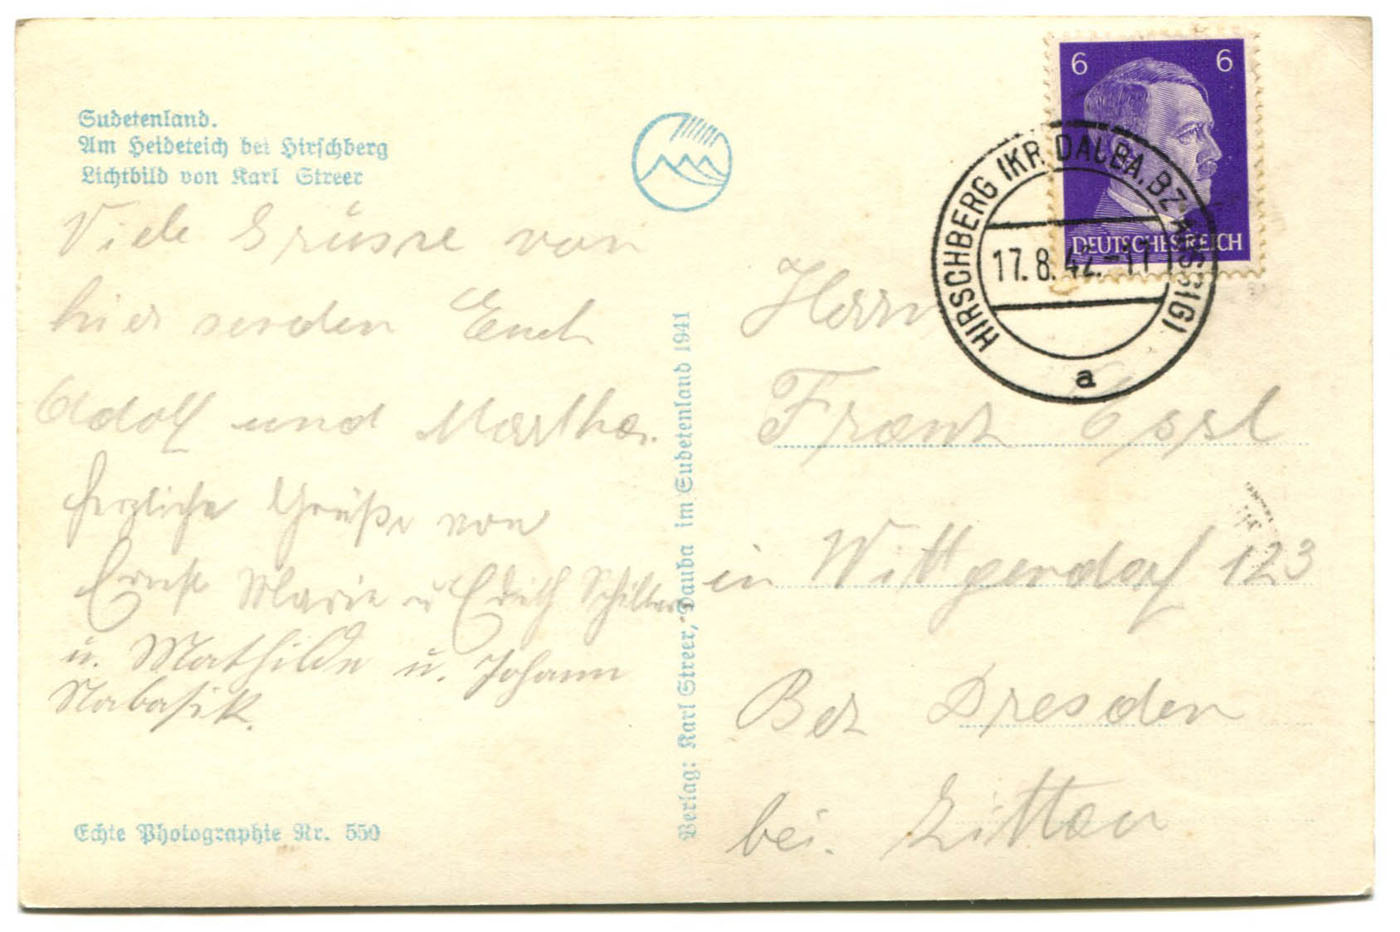 Sudetenland.
Am Heideteich bei Hirschberg
Lichtbild von Karl Streer
Viele Grüsse von
hier senden Euch
Adolf und Martha.
Herzliche Grüße von
Ernst Marie u Edith
u. Mathilde u. Johann
Nabasik.
Echte Photographie Nr. 550
Verlag: Karl Streer, Dauba im Sudetenland 1941
6 6
DEUTSCHES REICH
HIRSCHBERG (KR. DAUBA, BZ. AUSSIG)
17.8.42.-17
a
Herrn
Franz Essl
in Wittgendorf 123
Bez Dresden
bei. Zittau